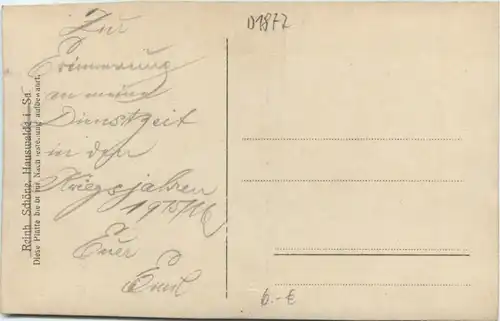 Zur
Erinnerung
an meine
Dienstzeit
in den
Kriegsjahren
1915/16
Euer
Emil
Reinh. Schöne, Hauswalde i. Sa.
Diese Platte bleibt für Nachbestellung aufbewahrt.
01872
6.-€